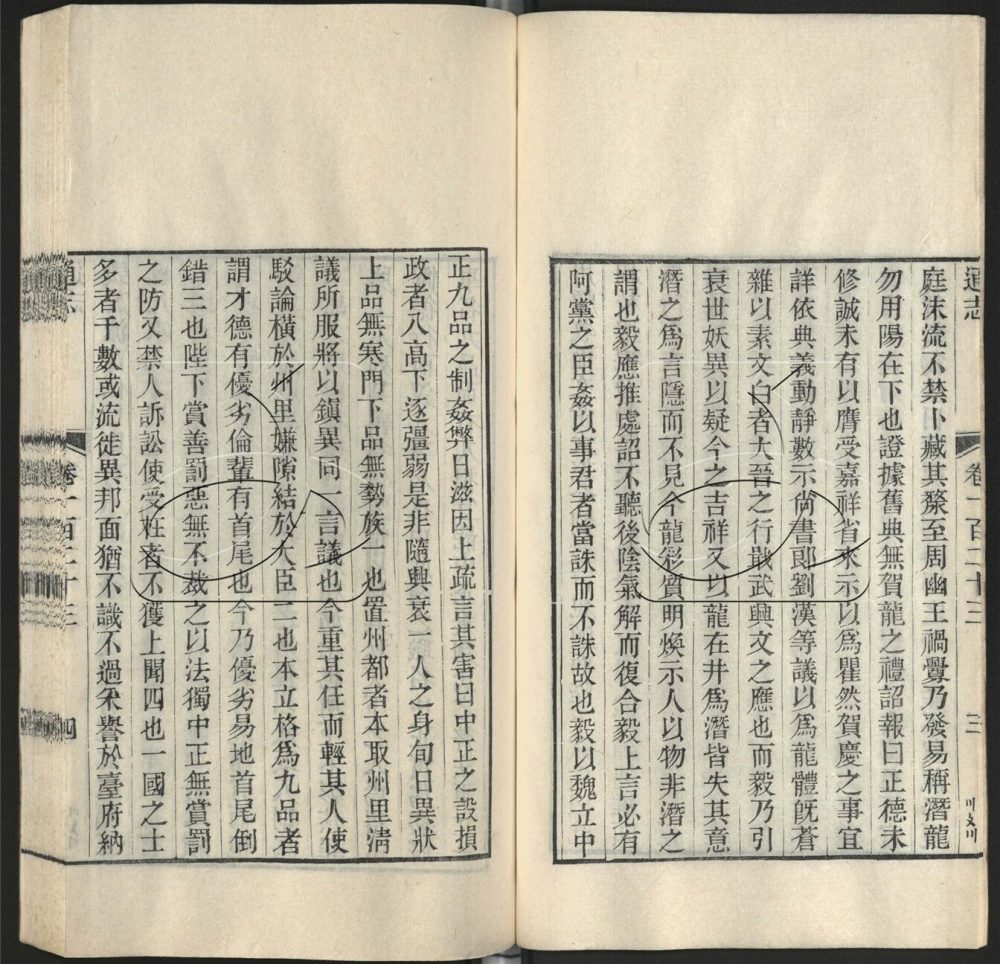 通志
卷一百二十三
三
庭沫流不禁卜藏其漦至周幽王禍釁乃發易稱潛龍
勿用陽在下也證據舊典無賀龍之禮詔報曰正德未
修誠未有以膺受嘉祥省來示以爲瞿然賀慶之事宜
詳依典義動靜數示尚書郎劉漢等議以爲龍體旣蒼
雜以素文白者大晉之行戢武興文之應也而毅乃引
衰世妖異以疑今之吉祥又以龍在井爲潛皆失其意
潛之爲言隱而不見今龍彩質明煥示人以物非潛之
謂也毅應推處詔不聽後陰氣解而復合毅上言必有
阿黨之臣姦以事君者當誅而不誅故也毅以魏立中
正九品之制姦弊日滋因上疏言其害曰中正之設損
政者八高下逐彊弱是非隨興衰一人之身旬日異狀
上品無寒門下品無勢族一也置州都者本取州里淸
議所服將以鎭異同一言議也今重其任而輕其人使
駁論橫於州里嫌隙結於大臣二也本立格爲九品者
謂才德有優劣倫輩有首尾也今乃優劣易地首尾倒
錯三也陛下賞善罰惡無不裁之以法獨中正無賞罰
之防又禁人訴訟使受枉者不獲上聞四也一國之士
多者千數或流徙異邦面猶不識不過采譽於臺府納
通志
卷一百二十三
四